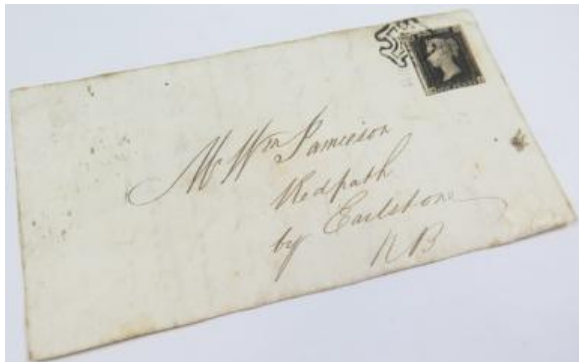 Mr Wm Jamieson
Redpath
by Earlstone
N B